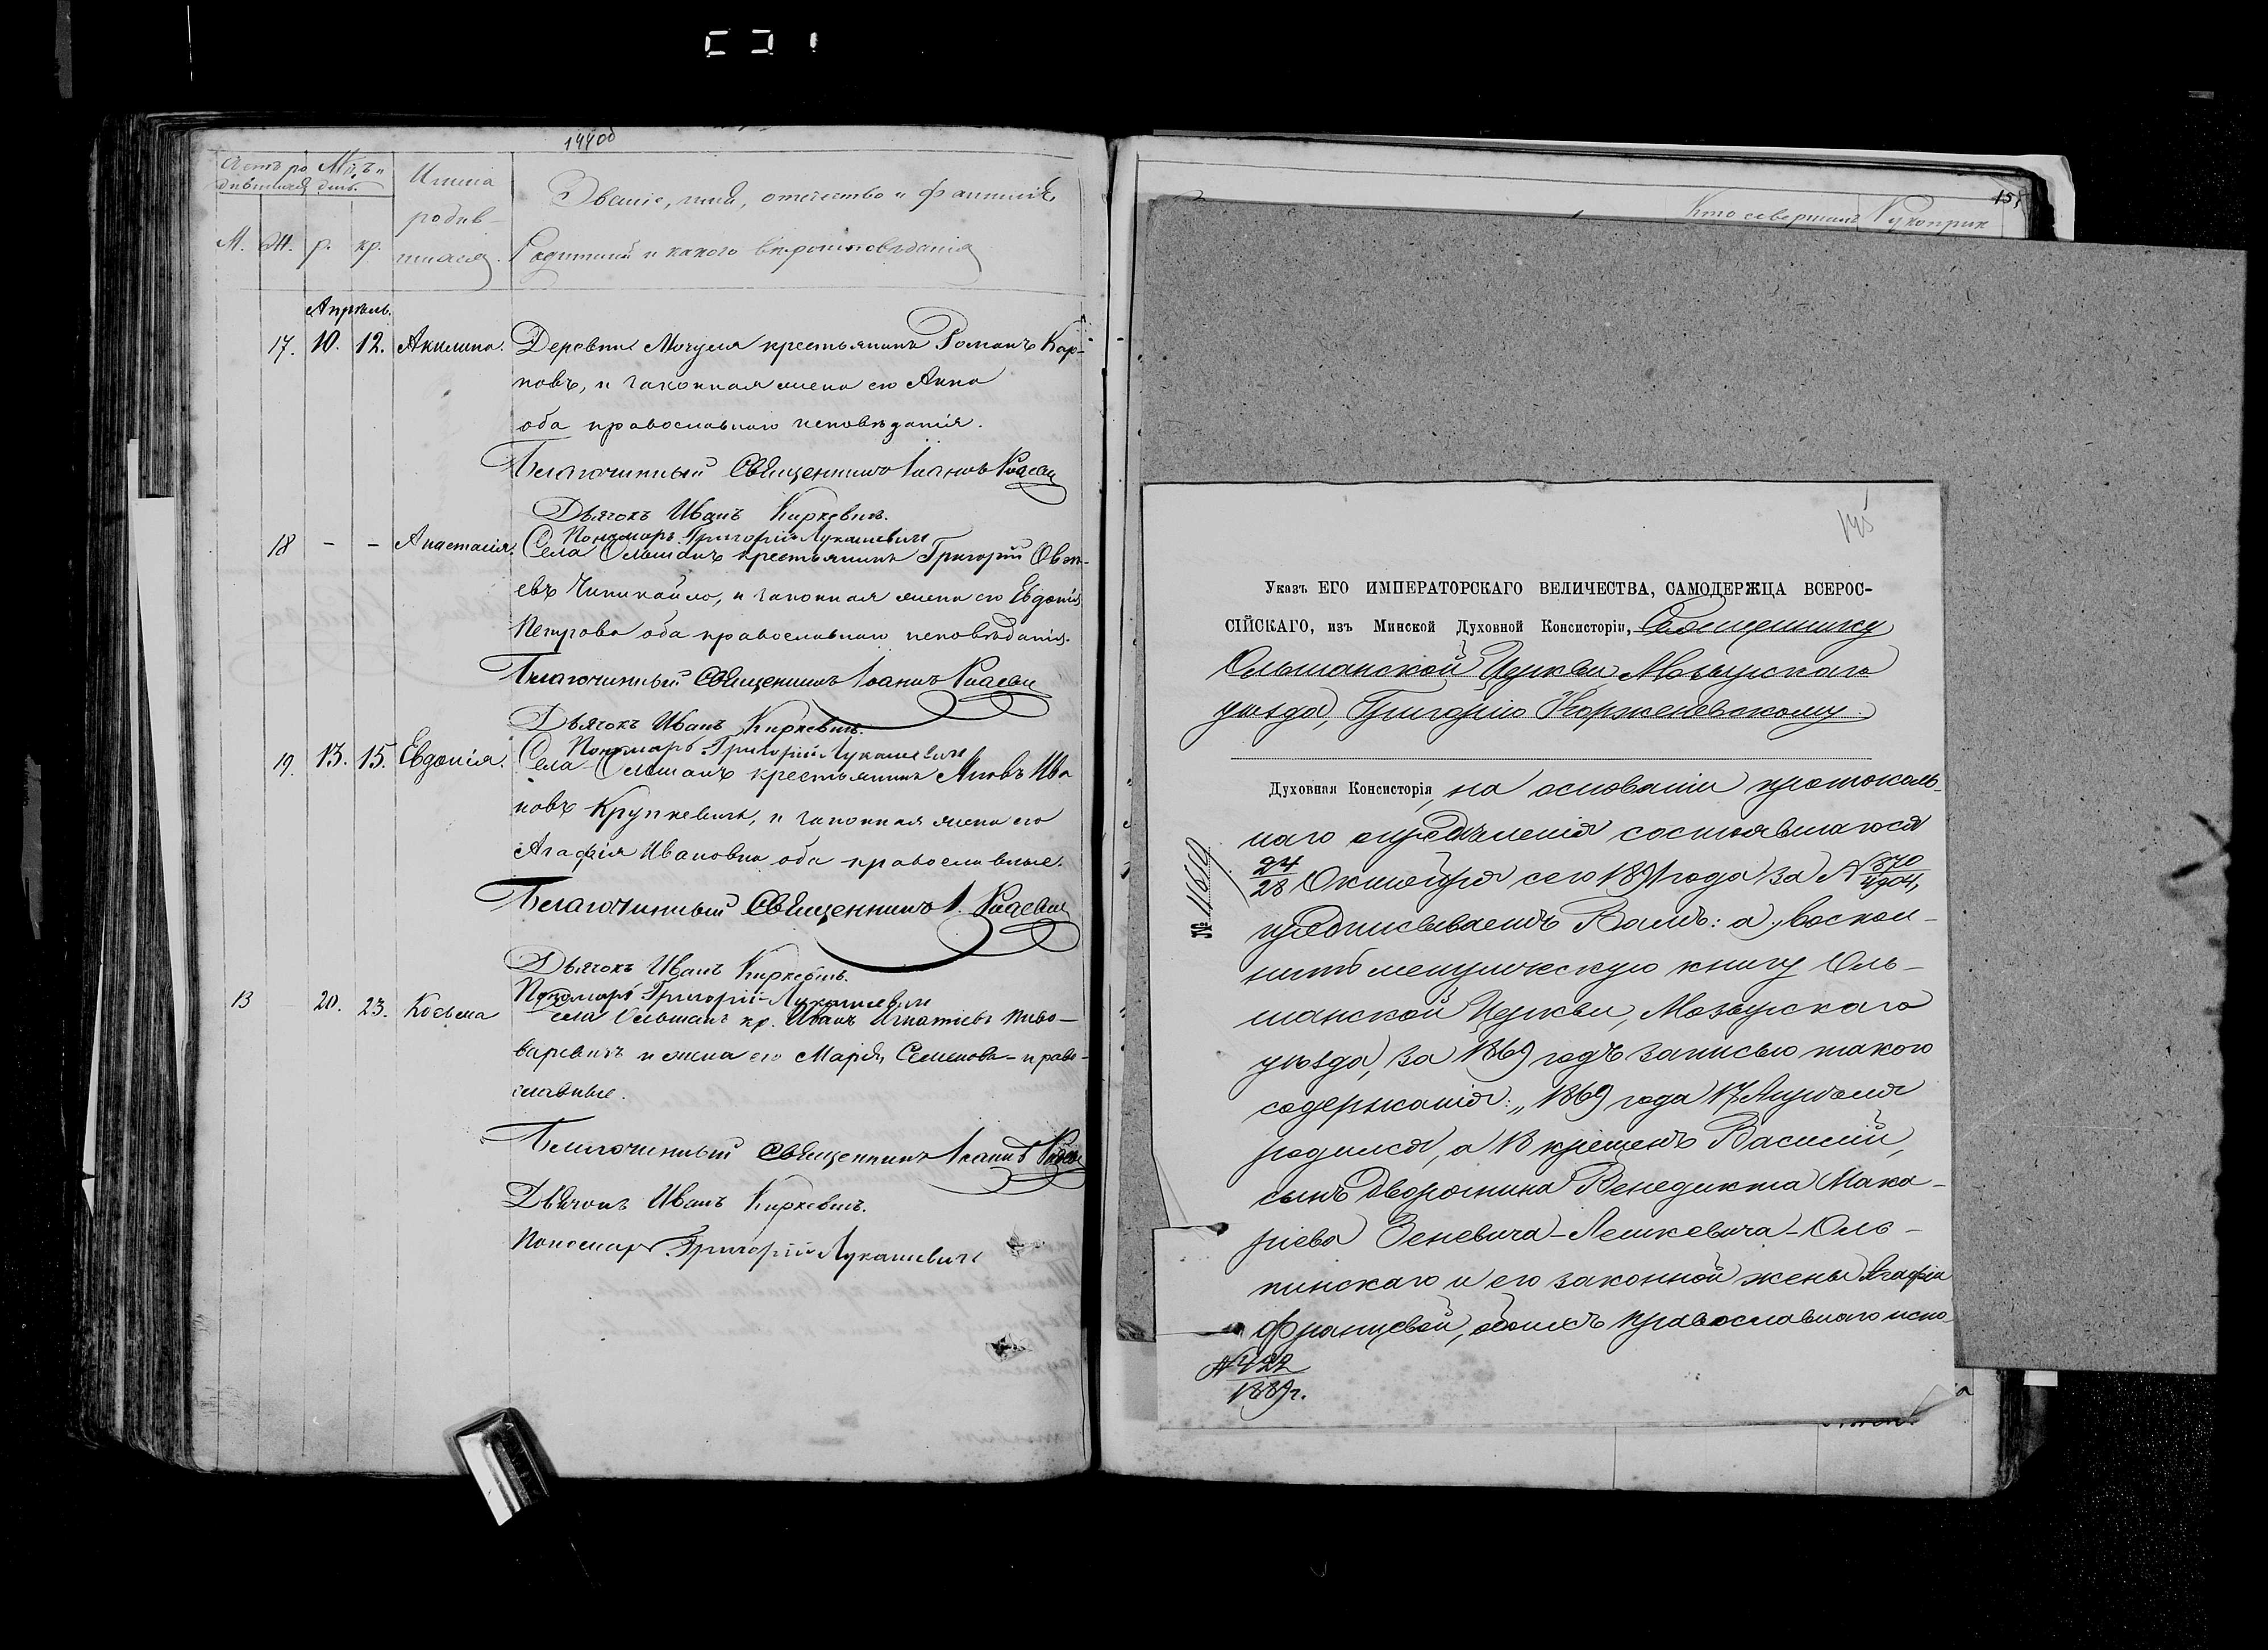 144об
Счетъ ро Мѣ.ъ и
дившихся день.
Имена
родив-
шихся.
М. Ж. р. кр.
Званіе, имя, отчество и фамилія
Родителей и какого вѣроисповѣданія
Апрѣль.
17. 10. 12. Акилина. Деревни Мочуля крестьянинъ Романъ Кар-
повъ, и законная жена его Анна
оба православнаго исповѣданія.
Благочинный Священникъ Іоаннъ
Дьячокъ Иванъ Киркевичъ.
Пономарь Григорій Лукашевичъ
18 - - Анастасія. Села Ольманъ крестьянинъ Григорій
евъ Чипикайло, и законная жена его Евдокія
Петрова оба православнаго исповѣданія.
Благочинный Священникъ Іоаннъ
Дьячокъ Иванъ Киркевичъ.
Пономарь Григорій Лукашевичъ
19. 13. 15. Евдокія. Села Ольманъ крестьянинъ Яковъ Ива
новъ Крупкевичъ, и законная жена его
Агафія Ивановна оба православные.
Благочинный Священникъ І.
Дьячокъ Иванъ Киркевичъ.
Пономарь Григорій Лукашевичъ
13 20. 23. Косьма Села Ольманъ кр. Иванъ Игнатіевъ Пиво-
варевичъ и жена его Марія Семенова - право-
славные.
Благочинный Священникъ Іоаннъ
Дьячокъ Иванъ Киркевичъ.
Пономарь Григорій Лукашевичъ
151
Кто совершалъ Рукоприк
145
Указъ ЕГО ИМПЕРАТОРСКАГО ВЕЛИЧЕСТВА, САМОДЕРЖЦА ВСЕРОС-
СІЙСКАГО, изъ Минской Духовной Консисторіи, Священнику
Ольманской Церкви, Мозырскаго
уѣзда, Григорію Корженевскому.
Духовная Консисторія, на основаніи протоколь-
наго опредѣленія состоявшагося
24/28 Октября сего 1891 года за № 370/4904,
предписываетъ Вамъ: а, воспол-
нить метрическую книгу Оль-
манской Церкви, Мозырскаго
уѣзда, за 1869 годъ записью такого
содержанія: „1869 года 17 Апрѣля
родился, а 18 крещенъ Василій,
сынъ дворянина Венедикта Мака-
ріева Зеневича-Лешкевича-Оль-
пинскаго и его законной жены Агафіи
Францевой, обоихъ православнаго испо-
№ 11650
№ 422
1889 г.